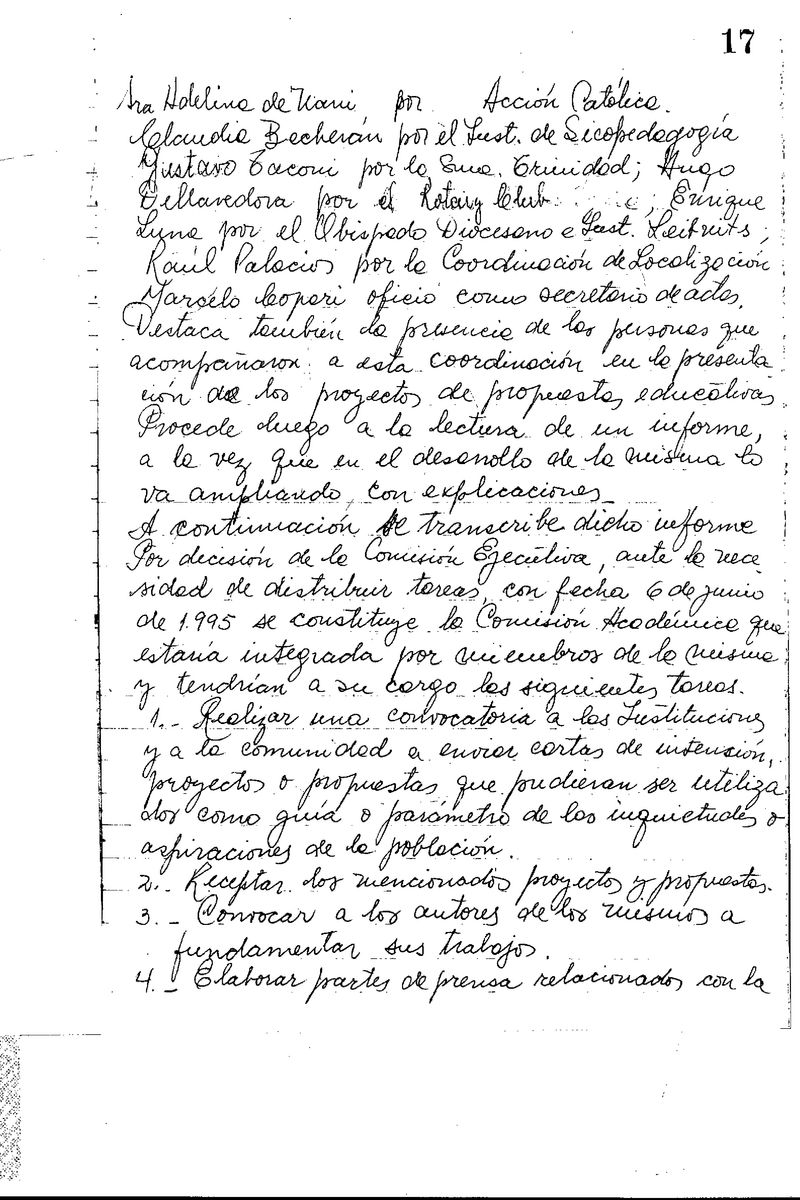 17
Sra Adelina de Nani por Acción Católica.
Claudia Becherán por el Inst. de Sicopedagogía
Gustavo Taconi por la Sma. Trinidad; Hugo
Dellavedova por el Rotary Club ; Enrique
Luna por el Obispado Diocesano e Inst. Leibnits;
Raúl Palacios por la Coordinación de Localización
Marcelo Copari ofició como secretario de actas.
Destaca también la presencia de las personas que
acompañaron a esta coordinación en la presenta
ción de los proyectos de propuestas educativas
Procede luego a la lectura de un informe,
a la vez que en el desarrollo de la misma lo
va ampliando, con explicaciones
A continuación se transcribe dicho informe
Por decisión de la Comisión Ejecutiva, ante la nece
sidad de distribuir tareas, con fecha 6 de junio
de 1.995 se constituye la Comisión Académica que
estaría integrada por miembros de la misma
y tendrían a su cargo las siguientes tareas.
1.- Realizar una convocatoria a las Instituciones
y a la comunidad a enviar cartas de intensión,
proyectos o propuestas que pudieran ser utiliza
dos como guía o parámetro de las inquietudes o
aspiraciones de la población.
2.- Receptar los mencionados proyectos y propuestas.
3.- Convocar a los autores de los mismos a
fundamentar sus trabajos.
4.- Elaborar partes de prensa relacionados con la